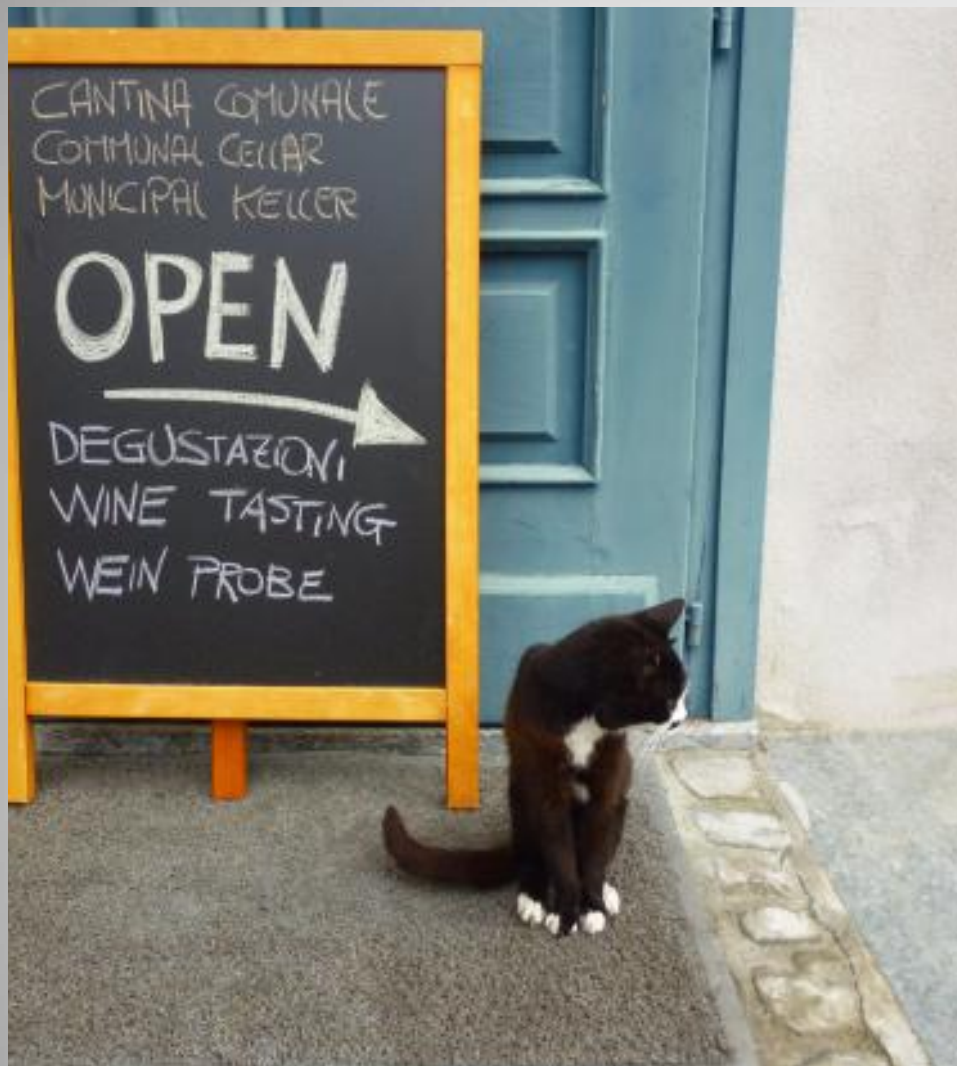 CANTINA COMUNALE
COMMUNAL CELLAR
MUNICIPAL KELLER
OPEN
DEGUSTAZIONI
WINE TASTING
WEIN PROBE